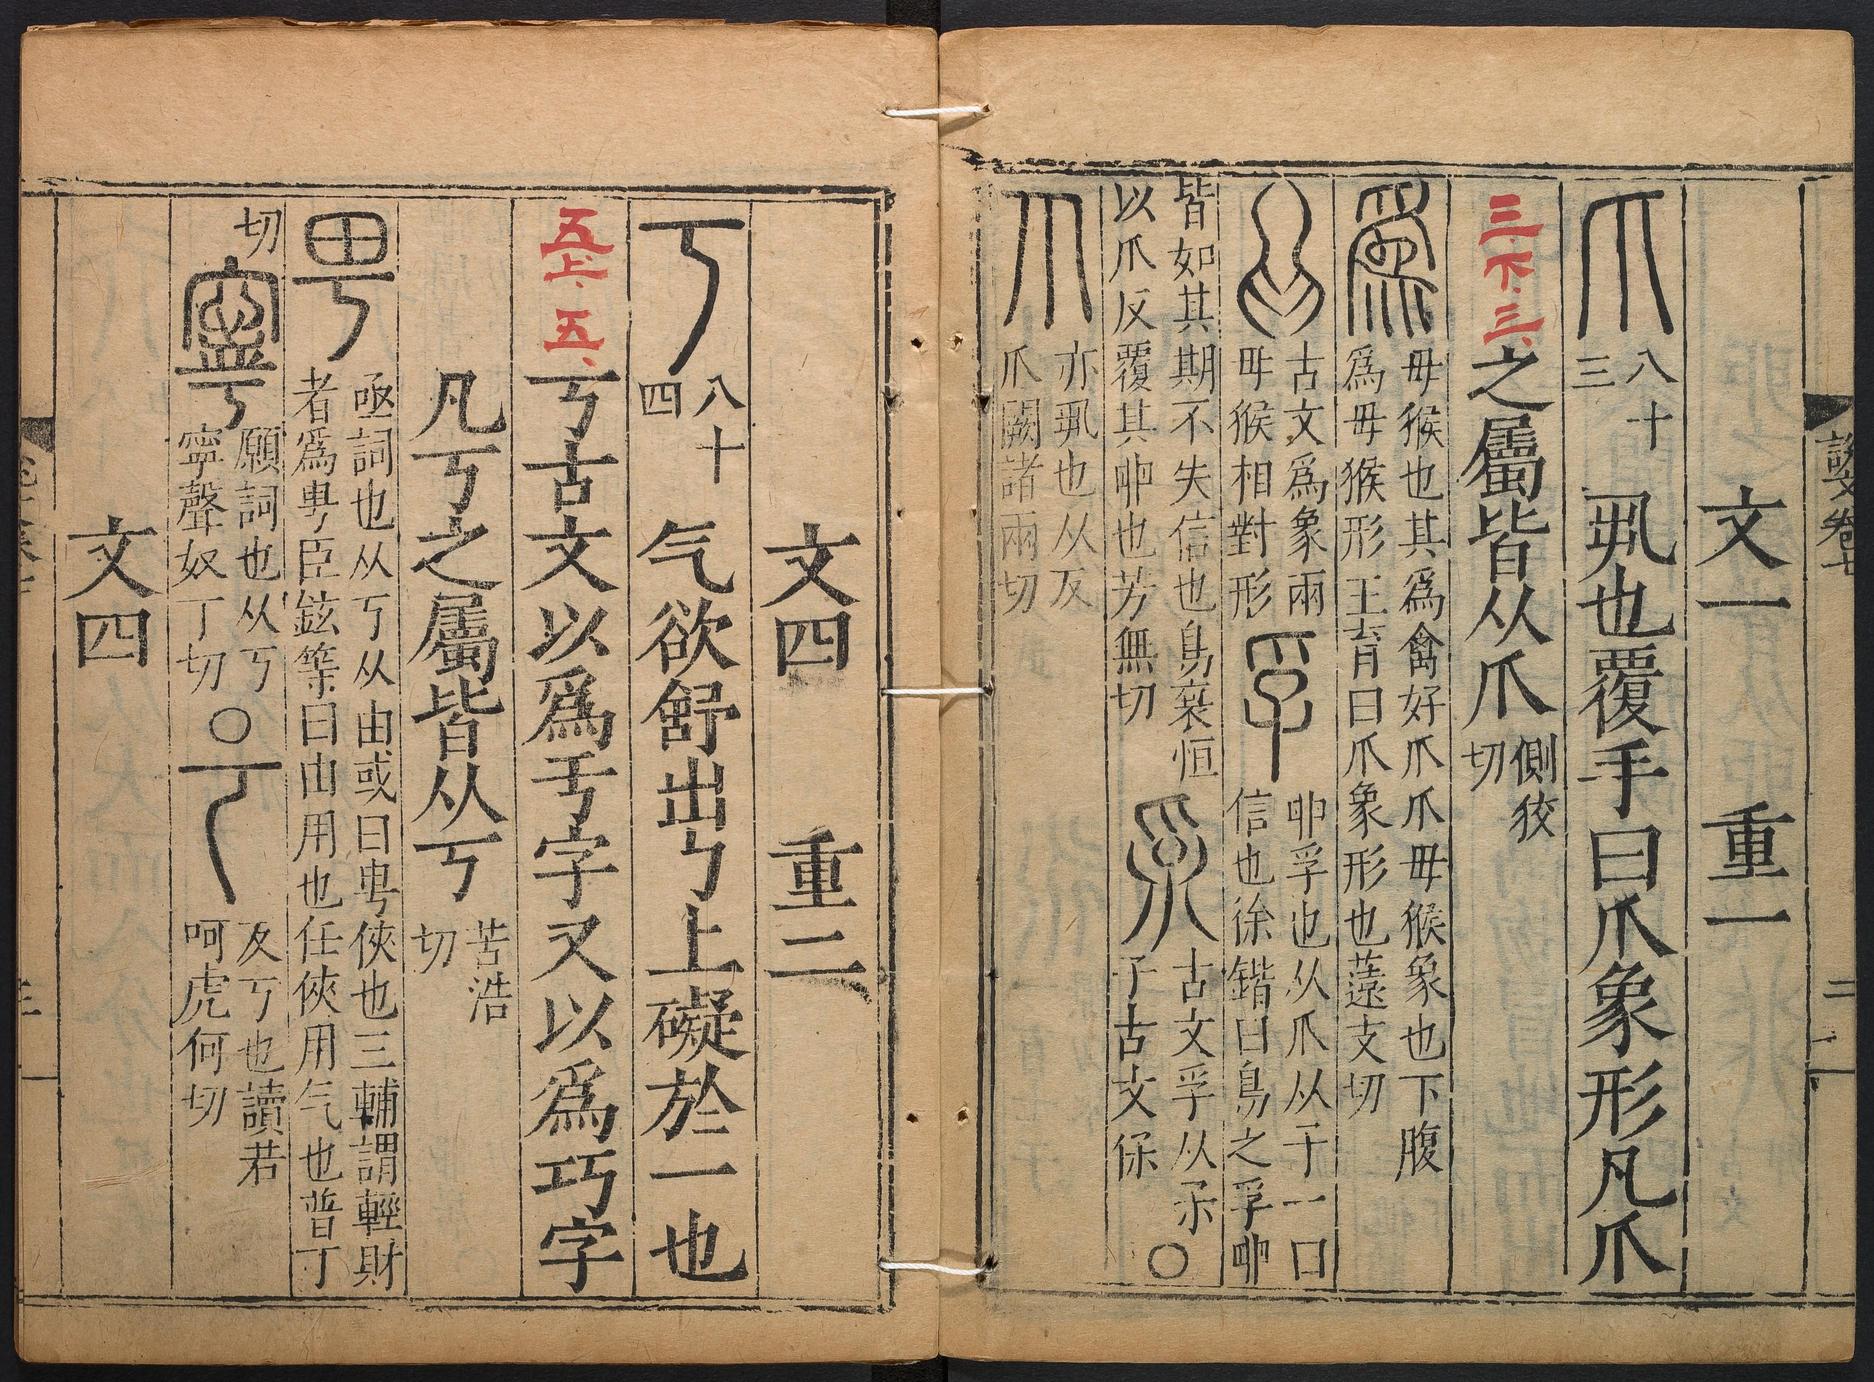 說文卷七
二
文一 重一
爪 八十三 丮也覆手曰爪象形凡爪
三下三
之屬皆从爪 側狡切
爲 母猴也其爲禽好爪爪母猴象也下腹
爲母猴形王育曰爪象形也薳支切
古文爲象兩
母猴相對形
孚 卵孚也从爪从子一曰
信也徐鍇曰鳥之孚卵
皆如其期不失信也鳥裒恒
以爪反覆其卵也芳無切
古文孚从𤓽○
子古文保
爪 亦丮也从反
爪闕諸兩切
文四 重二
丂 八十四 气欲舒出丂上礙於一也
五上五
丂古文以爲亏字又以爲巧字
凡丂之屬皆从丂 苦浩切
甹 亟詞也从丂从由或曰甹俠也三輔謂輕財
者爲甹臣鉉等曰由用也任俠用气也普丁
切
寧 願詞也从丂
寧聲奴丁切○
反丂也讀若
呵虎何切
文四
三